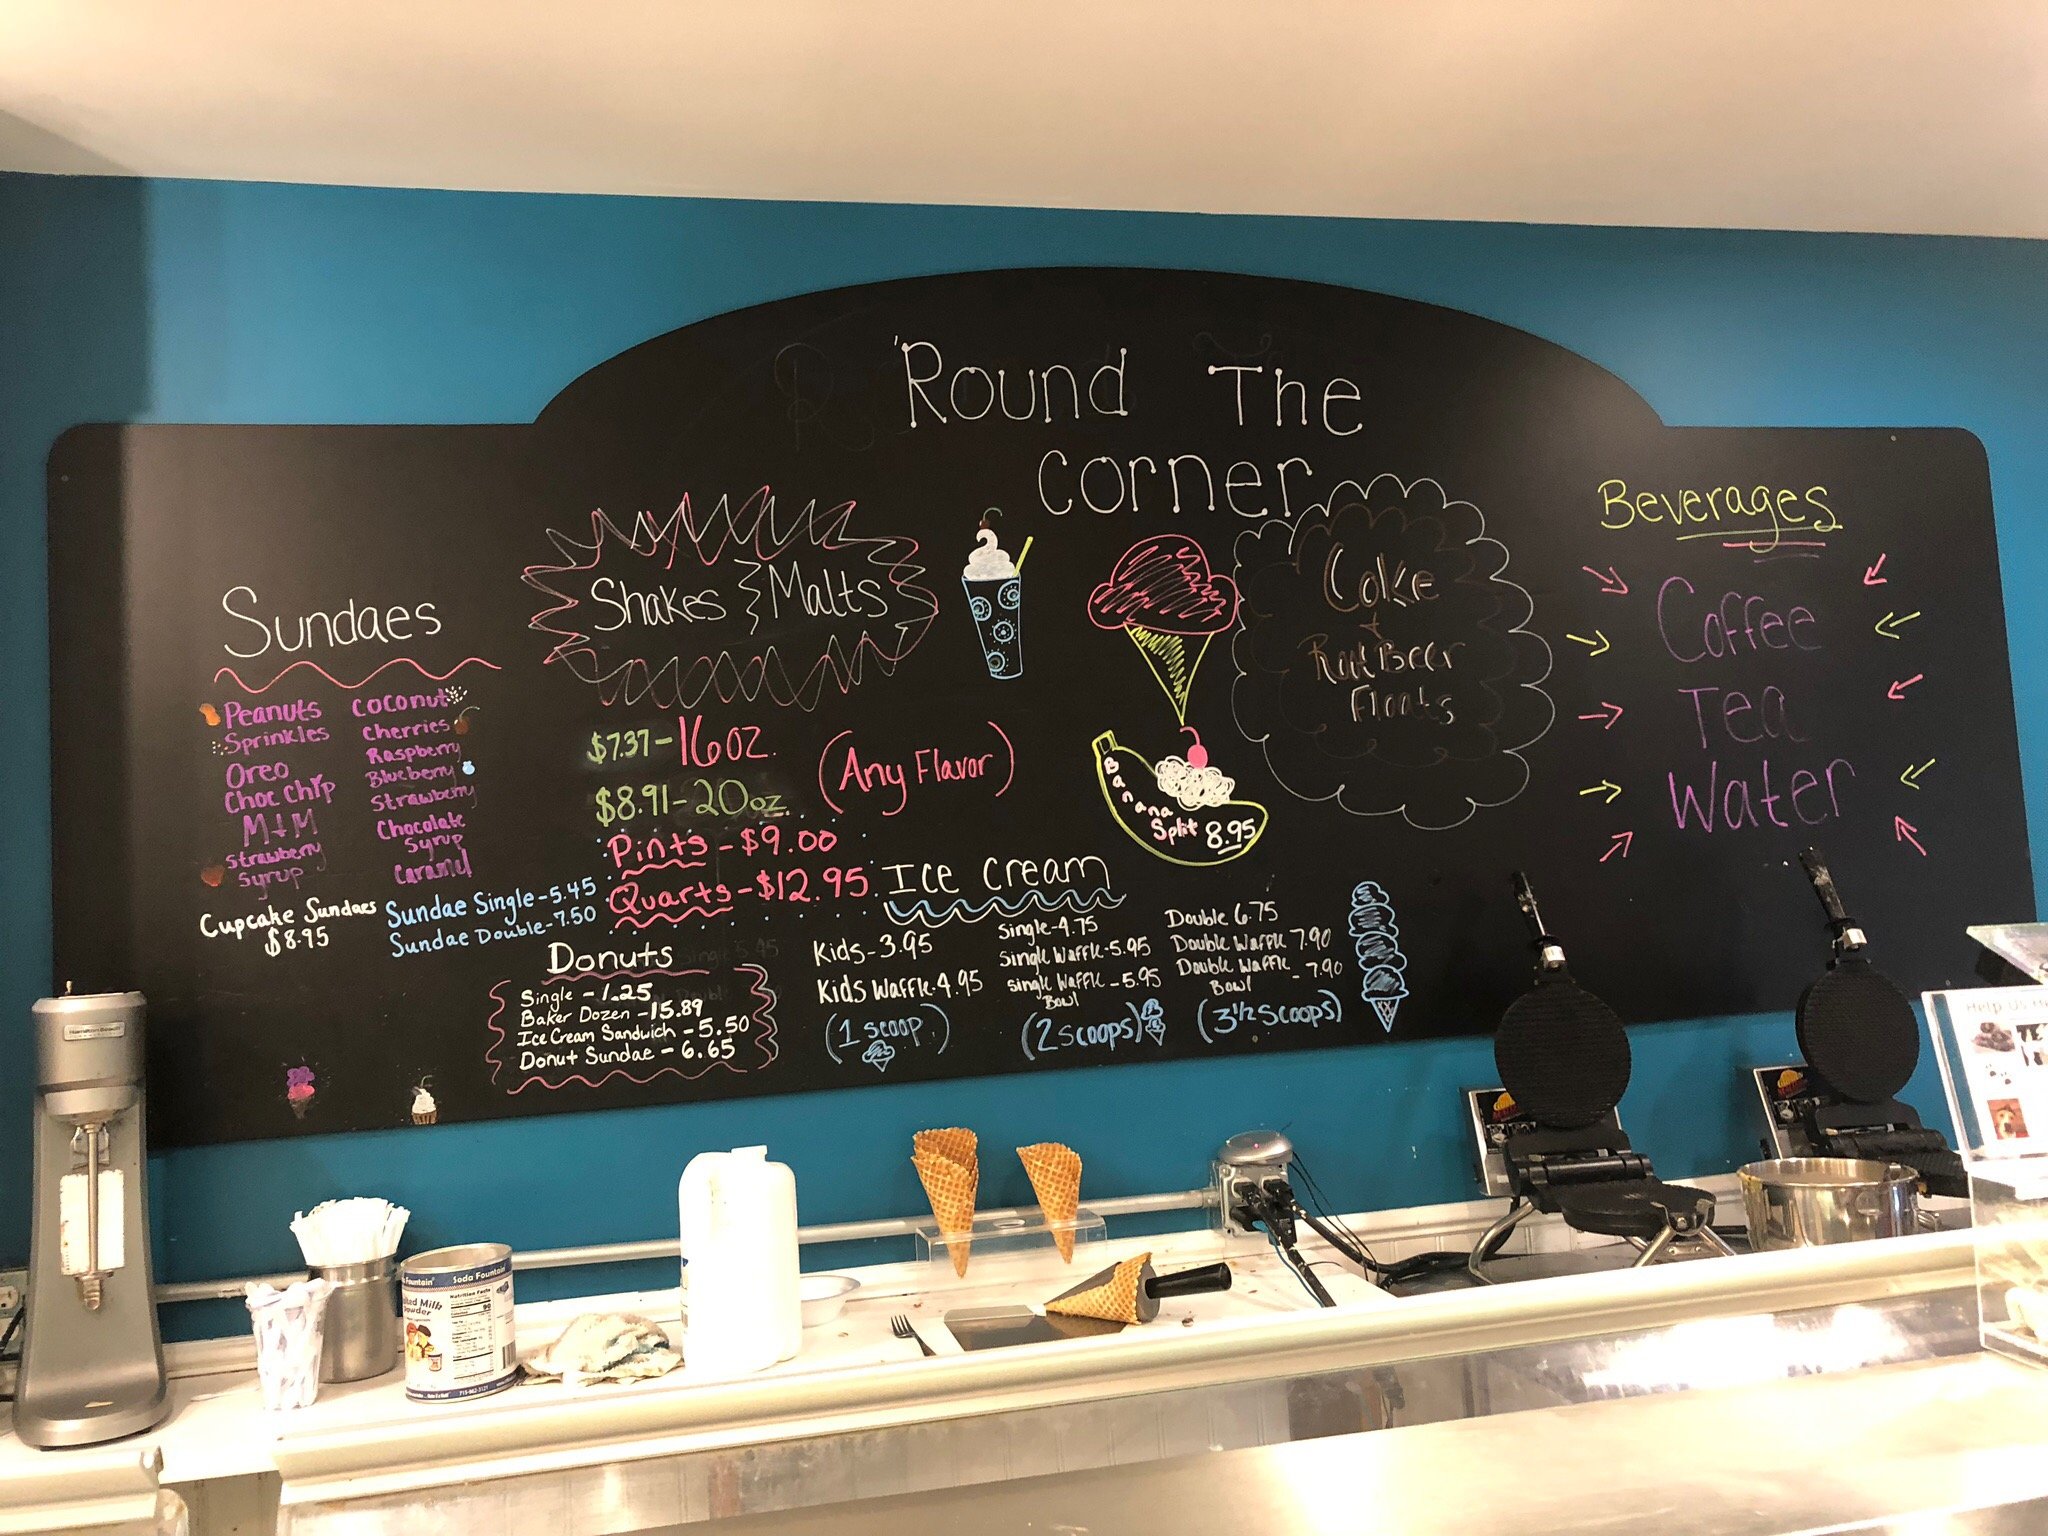 'Round The
Corner
Sundaes
Peanuts
Sprinkles
Oreo
Choc Chip
M+M
Strawberry
Syrup
Coconut
Cherries
Raspberry
Blueberry
Strawberry
Chocolate
Syrup
Caramel
Cupcake Sundaes
$8.95
Sundae Single-5.45
Sundae Double-7.50
Shakes & Malts
$7.37-16oz.
$8.91-20oz.
(Any Flavor)
Pints-$9.00
Quarts-$12.95
Donuts
Single-1.25
Baker Dozen-15.89
Ice Cream Sandwich-5.50
Donut Sundae-6.65
Banana
Split 8.95
Ice Cream
Kids-3.95
Kids Waffle-4.95
(1 scoop)
Single-4.75
Single Waffle-5.95
Single Waffle-5.95
Bowl
(2 scoops)
Double 6.75
Double Waffle 7.90
Double Waffle-7.90
Bowl
(3 1/2 Scoops)
Coke
+
Root Beer
Floats
Beverages
Coffee
Tea
Water
Hamilton Beach
Soda Fountain
Nutrition Facts
Powder
Help Us